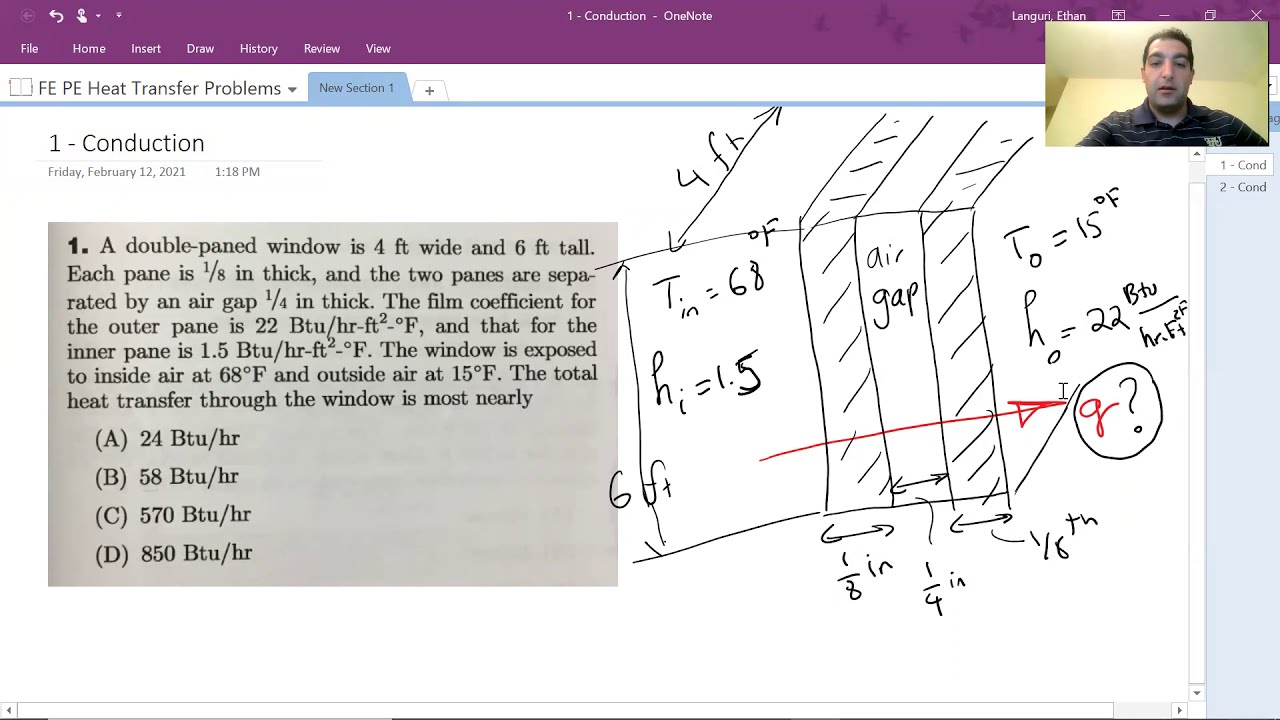 1 - Conduction - OneNote
Languri, Ethan
File Home Insert Draw History Review View
FE PE Heat Transfer Problems
New Section 1
+
1 - Conduction
Friday, February 12, 2021 1:18 PM
1 - Cond
2 - Cond
1. A double-paned window is 4 ft wide and 6 ft tall.
Each pane is 1/8 in thick, and the two panes are sepa-
rated by an air gap 1/4 in thick. The film coefficient for
the outer pane is 22 Btu/hr-ft²-°F, and that for the
inner pane is 1.5 Btu/hr-ft²-°F. The window is exposed
to inside air at 68°F and outside air at 15°F. The total
heat transfer through the window is most nearly
(A) 24 Btu/hr
(B) 58 Btu/hr
(C) 570 Btu/hr
(D) 850 Btu/hr
4 ft
T in = 68 °F
h i = 1.5
6 ft
air
gap
T o = 15 °F
h o = 22 Btu/hr.ft² °F
q?
1/8 in
1/4 in
1/8 th